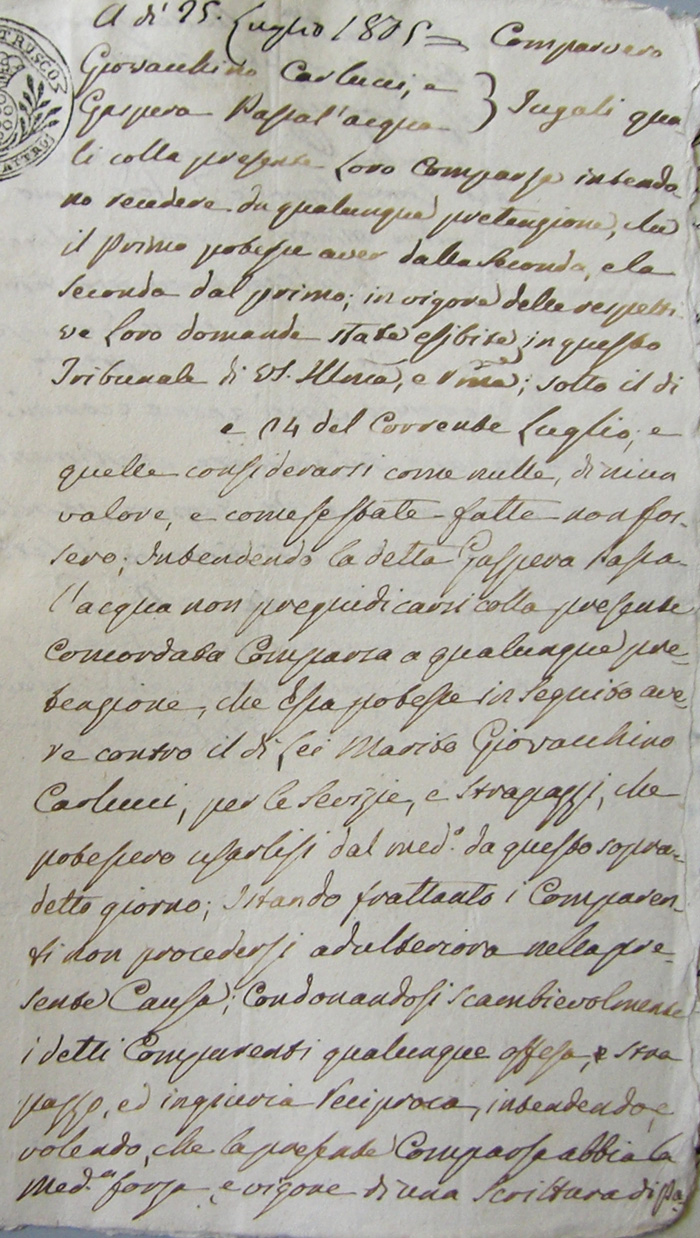 A dì 25. Luglio 1805 = Comparvero
Giovacchino Carlucci, e
Gaspera Passal'acqua } Jugali qua
li colla presente Loro Comparsa intendo-
no recedere da qualunque pretenzione, che
il Primo potesse aver dalla Seconda, e la
Seconda dal primo; in vigore delle respetti-
ve Loro domande state esibite in questo
Tribunale di VS. Illma, e Rma; sotto il dì
e 14 del Corrente Luglio, e
quelle considerarsi come nulle, di niun
valore, e come se state fatte non fos-
sero; Intendendo la detta Gaspera Passa-
l'acqua non pregiudicarsi colla presente
Concordata Comparsa a qualunque pre-
tenzione, che Essa potesse in seguito ave-
re contro il di Lei Marito Giovacchino
Carlucci, per le Sevizie, e strapazzi, che
potessero usarlisi dal med.o da questo sopra-
detto giorno; Istando frattanto i Comparen-
ti non procedersi ad ulteriora nella pre-
sente Causa; Condonandosi scambievolmente
i detti Comparenti qualunque offesa, e stra
pazzo, ed ingiuria reciproca, intendendo, e
volendo, che la presente Comparsa abbia la
Med.a forza, e vigore di una Scrittura di Pa